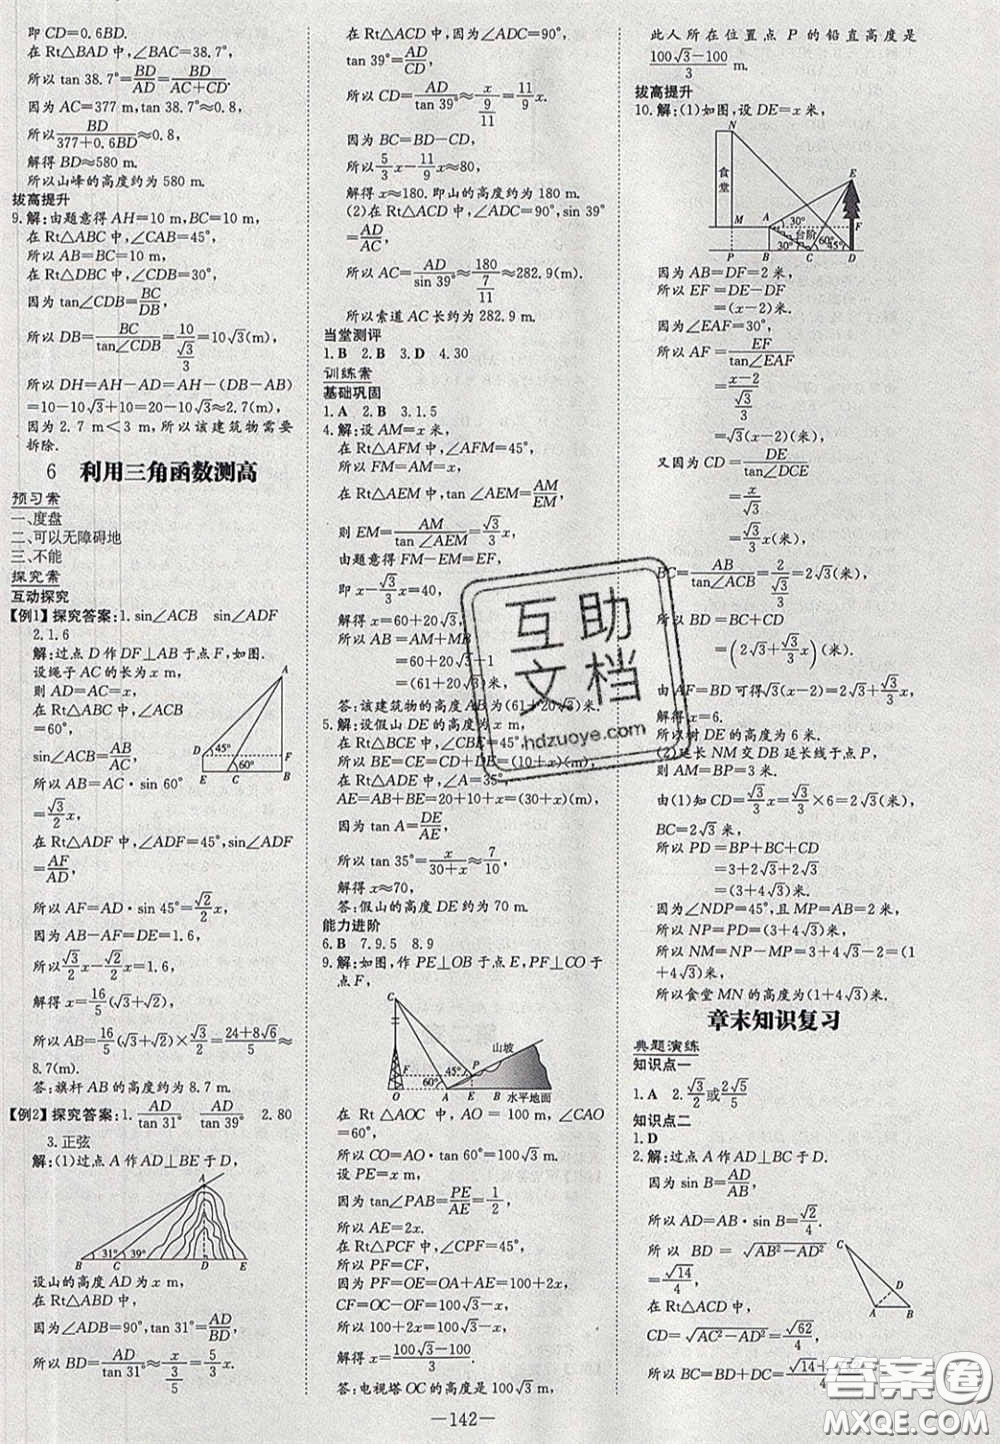 即 CD=0.6BD.
在 Rt△BAD 中,∠BAC=38.7°,
所以 tan 38.7°=BD/AD=BD/(AC+CD).
因为 AC=377 m,tan 38.7°≈0.8,
所以 BD/(377+0.6BD)≈0.8,
解得 BD≈580 m.
所以山峰的高度约为 580 m.
拔高提升
9.解:由题意得 AH=10 m,BC=10 m,
在 Rt△ABC 中,∠CAB=45°,
所以 AB=BC=10 m,
在 Rt△DBC 中,∠CDB=30°,
因为 tan∠CDB=BC/DB,
所以 DB=BC/tan∠CDB=10/(√3/3)=10√3(m),
所以 DH=AH-AD=AH-(DB-AB)
=10-10√3+10=20-10√3≈2.7(m),
因为 2.7 m<3 m,所以该建筑物需要
拆除.
6 利用三角函数测高
预习案
一、度盘
二、可以无障碍地
三、不能
探究案
互动探究
【例1】探究答案:1.sin∠ACB sin∠ADF
2.1.6
解:过点 D 作 DF⊥AB 于点 F,如图.
设绳子 AC 的长为 x m,
则 AD=AC=x,
在 Rt△ABC 中,∠ACB
=60°,
sin∠ACB=AB/AC,
所以 AB=AC·sin 60°
=√3/2 x,
A
D 45° F
60°
E C B
在 Rt△ADF 中,∠ADF=45°,sin∠ADF
=AF/AD,
所以 AF=AD·sin 45°=√2/2 x,
因为 AB-AF=DE=1.6,
所以 √3/2 x-√2/2 x=1.6,
解得 x=16/5(√3+√2),
所以 AB(m)=16/5(√3+√2)×√3/2=(24+8√6)/5
≈8.7.
答:旗杆 AB 的高度约为 8.7 m.
【例2】探究答案:1.AD/tan 31° AD/tan 39° 2.80
3.正弦
解:(1)过点 A 作 AD⊥BC 于 D,
A
31° 39°
B C D E
设山的高度 AD 为 x m,
在 Rt△ABD 中,
因为 ∠ADB=90°,tan 31°=AD/BD,
所以 BD=AD/tan 31°≈x/(3/5)=5/3 x,
在 Rt△ACD 中,因为 ∠ADC=90°,
tan 39°=AD/CD,
所以 CD=AD/tan 39°≈x/(9/11)=11/9 x,
因为 BC=BD-CD,
所以 5/3 x-11/9 x≈80,
解得 x≈180.即山的高度约为 180 m.
(2)在 Rt△ACD 中,∠ADC=90°,sin 39°
=AD/AC,
所以 AC=AD/sin 39°≈180/(7/11)≈282.9(m).
所以索道 AC 长约为 282.9 m.
当堂测评
1.B 2.B 3.D 4.30
训练案
基础巩固
1.A 2.B 3.1.5
4.解:设 AM=x 米,
在 Rt△AFM 中,∠AFM=45°,
所以 FM=AM=x,
在 Rt△AEM 中,tan ∠AEM=AM/EM,
则 EM=AM/tan ∠AEM=√3/3 x,
由题意得 FM-EM=EF,
即 x-√3/3 x=40,
解得 x=60+20√3,
所以 AB=AM+MB
=60+20√3+1
=(61+20√3)米.
答:该建筑物的高度 AB 为(61+20√3)米.
5.解:设假山 DE 的高度为 x m,
在 Rt△BCE 中,∠CBE=45°,
所以 BE=CE=CD+DE=(10+x)(m),
在 Rt△ADE 中,∠A=35°,
AE=AB+BE=20+10+x=(30+x)(m),
因为 tan A=DE/AE,
所以 tan 35°=x/(30+x)≈7/10,
解得 x≈70,
答:假山的高度 DE 约为 70 m.
能力进阶
6.B 7.9.5 8.9
9.解:如图,作 PE⊥OB 于点 E,PF⊥CO 于
点 F,
C
山坡
F 45° P
60°
O A E B 水平地面
在 Rt △AOC 中,AO = 100 m,∠CAO
=60°,
所以 CO=AO·tan 60°=100√3 m.
设 PE=x m,
因为 tan∠PAB=PE/AE=1/2,
所以 AE=2x.
在 Rt△PCF 中,∠CPF=45°,
所以 PF=CF,
因为 PF=OE=OA+AE=100+2x,
CF=OC-OF=100√3-x,
所以 100+2x=100√3-x,
解得 x=(100√3-100)/3.
答:电视塔 OC 的高度是 100√3 m,
此人所在位置点 P 的铅直高度是
(100√3-100)/3 m.
拔高提升
10.解:(1)如图,设 DE=x 米,
N
食堂
E
M A 30° F
台阶
30° 60° 45°
P B C D
因为 AB=DF=2 米,
所以 EF=DE-DF
=(x-2)米.
因为∠EAF=30°,
所以 AF=EF/tan∠EAF
=(x-2)/(√3/3)
=√3(x-2)米.
又因为 CD=DE/tan∠DCE
=x/√3
=√3/3 x(米),
BC=AB/tan∠ACB=2/(√3/3)=2√3(米),
所以 BD=BC+CD
=(2√3+√3/3 x)米.
由 AF=BD 可得√3(x-2)=2√3+√3/3 x,
解得 x=6.
所以树 DE 的高度为 6 米.
(2)延长 NM 交 DB 延长线于点 P,
则 AM=BP=3 米.
由(1)知 CD=√3/3 x=√3/3×6=2√3(米),
BC=2√3 米,
所以 PD=BP+BC+CD
=3+2√3+2√3
=(3+4√3)米.
因为∠NDP=45°,且 MP=AB=2 米,
所以 NP=PD=(3+4√3)米,
所以 NM=NP-MP=3+4√3-2=(1
+4√3)米,
所以食堂 MN 的高度为(1+4√3)米.
章末知识复习
典题演练
知识点一
1.A 2.√2/2或2√5/5
知识点二
1.D
2.解:过点 A 作 AD⊥BC 于 D,
因为 sin B=AD/AB,
所以 AD=AB·sin B=√2/4.
所以 BD=√(AB²-AD²)
=√14/4,
C
D
A B
在 Rt△ACD 中,
CD=√(AC²-AD²)=√62/4,
所以 BC=BD+DC=
-142-
互助
文档
hdzuoye.com
答案圈
MXQE.COM